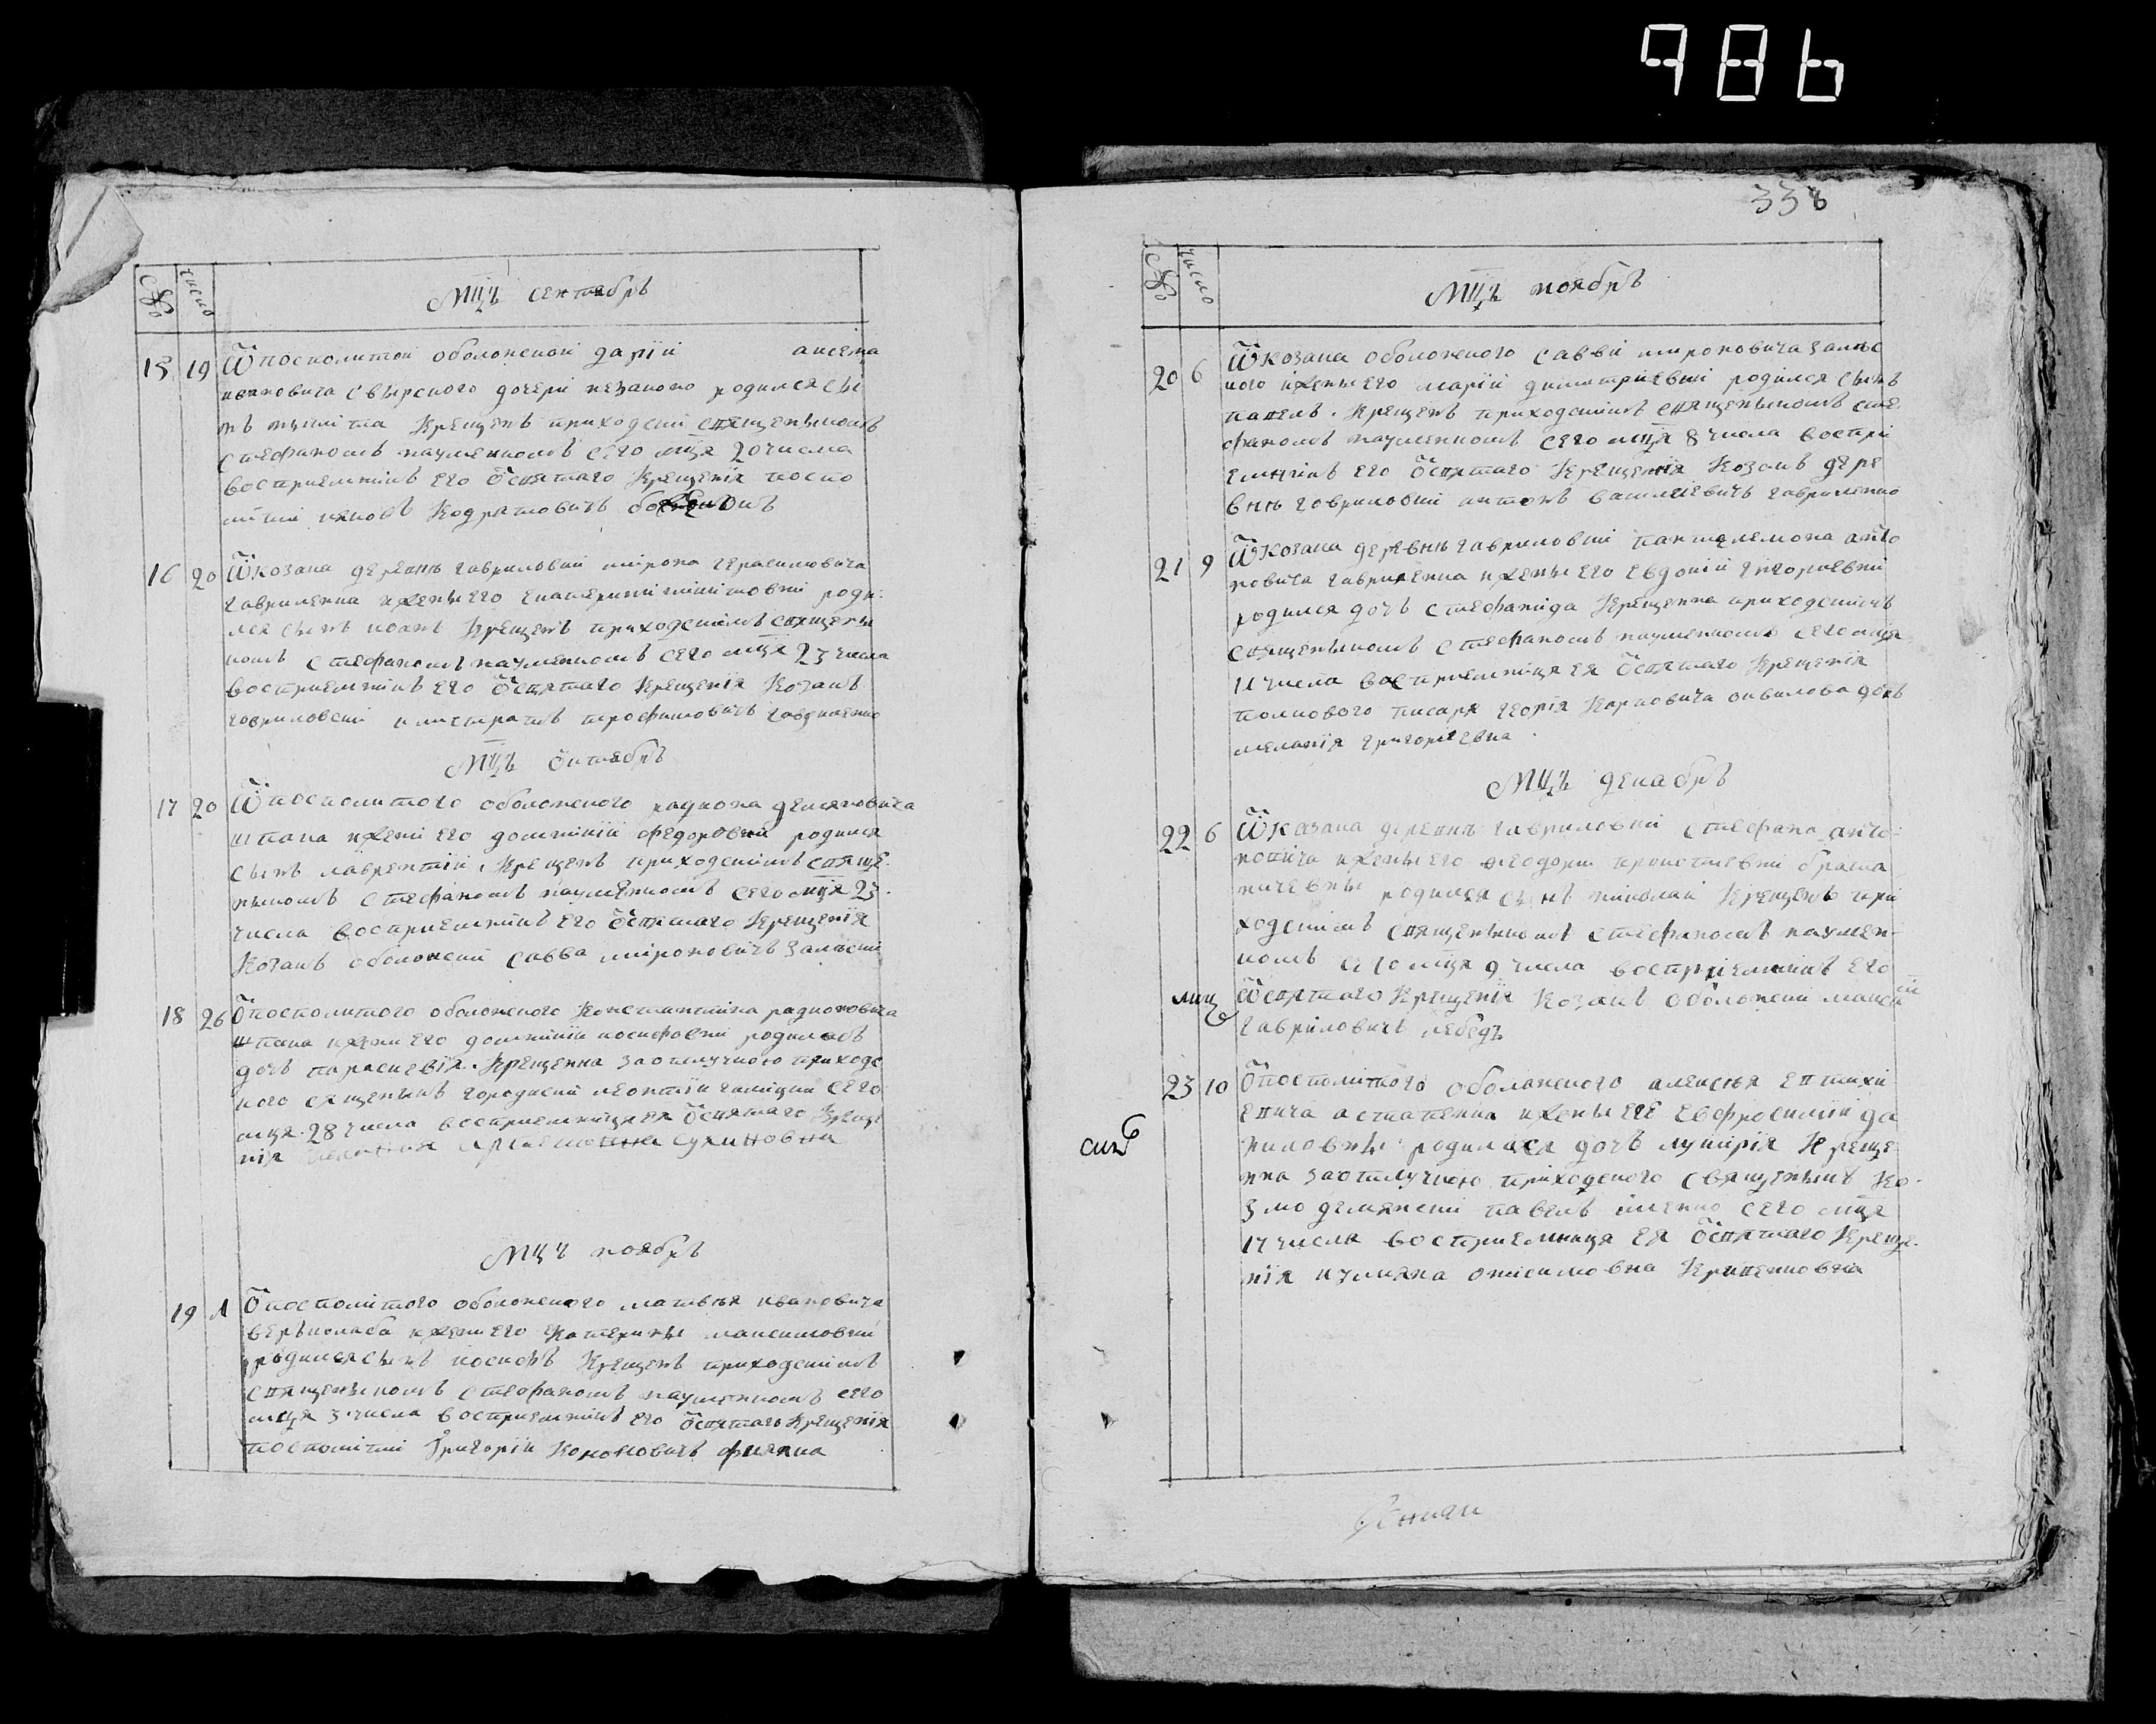 986
№ число Мцъ сентябръ
15 19 Ѿ посполитой оболонской дарїи
ивановича свырского дочери незаконо родился сы
нъ никита крещенъ приходский священыкомъ
стефаномъ науменкомъ сего мця 20 числа
восприемникъ его ѿ святаго крещенїя поспо
литий яковъ кодратовичъ
16 20 Ѿ козака деревнѣ гавриловки мирона герасимовича
гавриленка и жены его екатерини никитовни роди
лся сынъ иоанъ крещенъ приходскимъ священы
комъ стефаномъ науменкомъ сего мця 23 числа
восприемникъ его ѿ святаго крещенїя козакъ
гавриловский калистратъ трофимовичъ
Мцъ октябръ
17 20 Ѿ посполитого оболонского радиона демяновича
штапа и жени его домникїи федоровни родился
сынъ лаврентїй. крещенъ приходскимъ свяще
ныкомъ стефаномъ науменкомъ сего мця 23
числа восприемникъ его ѿ святаго крещенїя
козакъ оболонский савва мироновичъ залѣский
18 26 Ѿ посполитого оболонского константина радионовича
штапа и жени его домникїи иосифовни родиласъ
дочъ параскевїя. крещенна за отлучкою приходс
кого священыкъ городиский леонтїй сего
мця 28 числа восприемница ея ѿ святаго креще
нїя сухиновна
Мцъ ноябръ
19 1 Ѿ посполитого оболонского матвѣя ивановича
верѣколаба и жени его катерины максимовни
родился сынъ иосифъ крещенъ приходскимъ
священыкомъ стефаномъ науменкомъ сего
мця 3 числа восприемникъ его ѿ святаго крещенїя
посполитий григорїй кононовичъ
338
№ число Мцъ ноябръ
20 6 Ѿ козака оболонского савви мироновича залѣс
кого и жены его марїи димитриевни родился сынъ
павелъ. крещенъ приходскимъ священыкомъ сте
фаномъ науменкомъ сего мця 8 числа воспри
емникъ его ѿ святаго крещенїя козакъ дере
внѣ гавриловки антонъ василиевичъ гавриленко
21 9 Ѿ козака деревнѣ гавриловки пантелемона анто
новича гавриленка и жены его евдокїи григориевни
родился дочъ стефанида крещенна приходскимъ
священыкомъ стефаномъ науменкомъ сего мця
11 числа восприемница ея ѿ святаго крещенїя
полкового писаря георїя карповича дочъ
меланїя григориевна
Мцъ декабръ
22 6 Ѿ козака деревнѣ гавриловки стефана анто
новича и жены его феодори
родился сынъ николай крещенъ при
ходскимъ священыкомъ стефаномъ наумен
комъ сего мця 9 числа восприемникъ его
ѿ святаго крещенїя козакъ оболонский максим
гавриловичъ лебедъ
23 10 Ѿ посполитого оболонского алексѣя евтихи
евича остапенка и жены его евфросинїи да
ниловны родилася дочъ лукирїя креще
нна за отлучкою приходского священыкъ ко
змодемянский павелъ сего мця
17 числа восприемница ея ѿ святаго креще
нїя улияна онисимовна